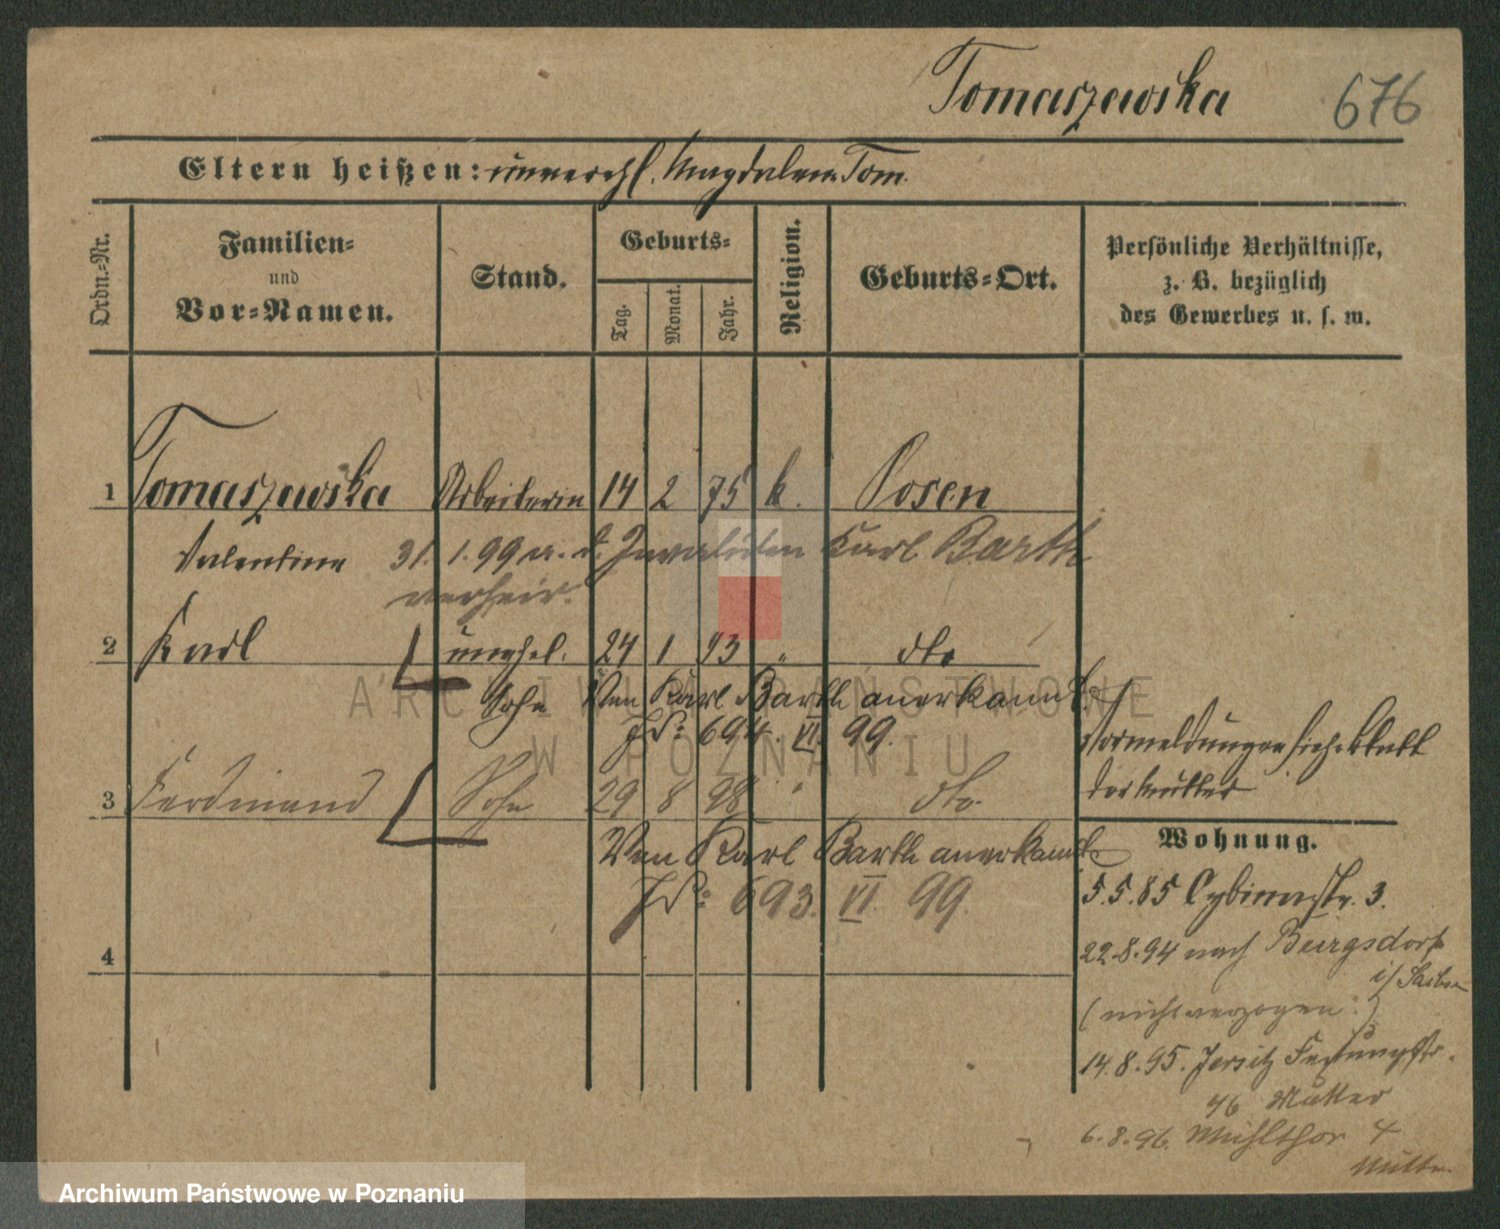 Tomaszewska 676
Eltern heißen: unverehl. Magdalena Tom.
Ordn.-Nr.
Familien-
und
Vor-Namen.
Stand.
Geburts-
Tag.
Monat.
Jahr.
Religion.
Geburts-Ort.
Persönliche Verhältnisse,
z. B. bezüglich
des Gewerbes u. s. w.
1 Tomaszewska Arbeiterin 14 2 75 k. Posen
Valentina 31. 1. 99 a. d. Invaliden Karl Barth
verheir.
2 Karl unehel. 24 1 93 " dto
Sohn Von Karl Barth anerkannt.
J№ 694. VI. 99.
3 Ferdinand Sohn 29 8 98 " dto.
Von Karl Barth anerkannt.
J№ 693. VI. 99.
4
Vormeldungen siehe Blatt
der Mutter
Wohnung.
5.5.85 Cybinastr. 3.
22.8.94 nach Burgsdorf
i/ Sachsen
(nicht verzogen:)
14.8.95. Jersitz Festungstr.
46 Mutter
6.8.96. Mühlthor 4
Mutter
ARCHIWUM PAŃSTWOWE
W POZNANIU
Archiwum Państwowe w Poznaniu